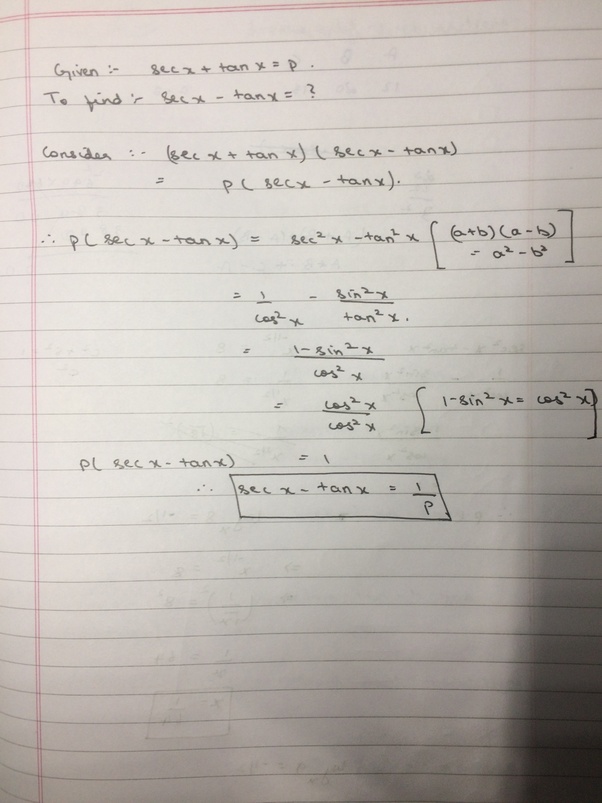 Given :- sec x + tan x = p .
To find :- sec x - tan x = ?
Consider :- (sec x + tan x) ( sec x - tan x)
= p ( sec x - tan x).
∴ p( sec x - tan x) = sec² x - tan² x [ (a+b) (a - b)
= a² - b² ]
= 1/cos² x - sin² x/tan² x .
= 1 - sin² x/cos² x
= cos² x/cos² x [ 1 - sin² x = cos² x ]
p( sec x - tan x) = 1
∴ sec x - tan x = 1/p